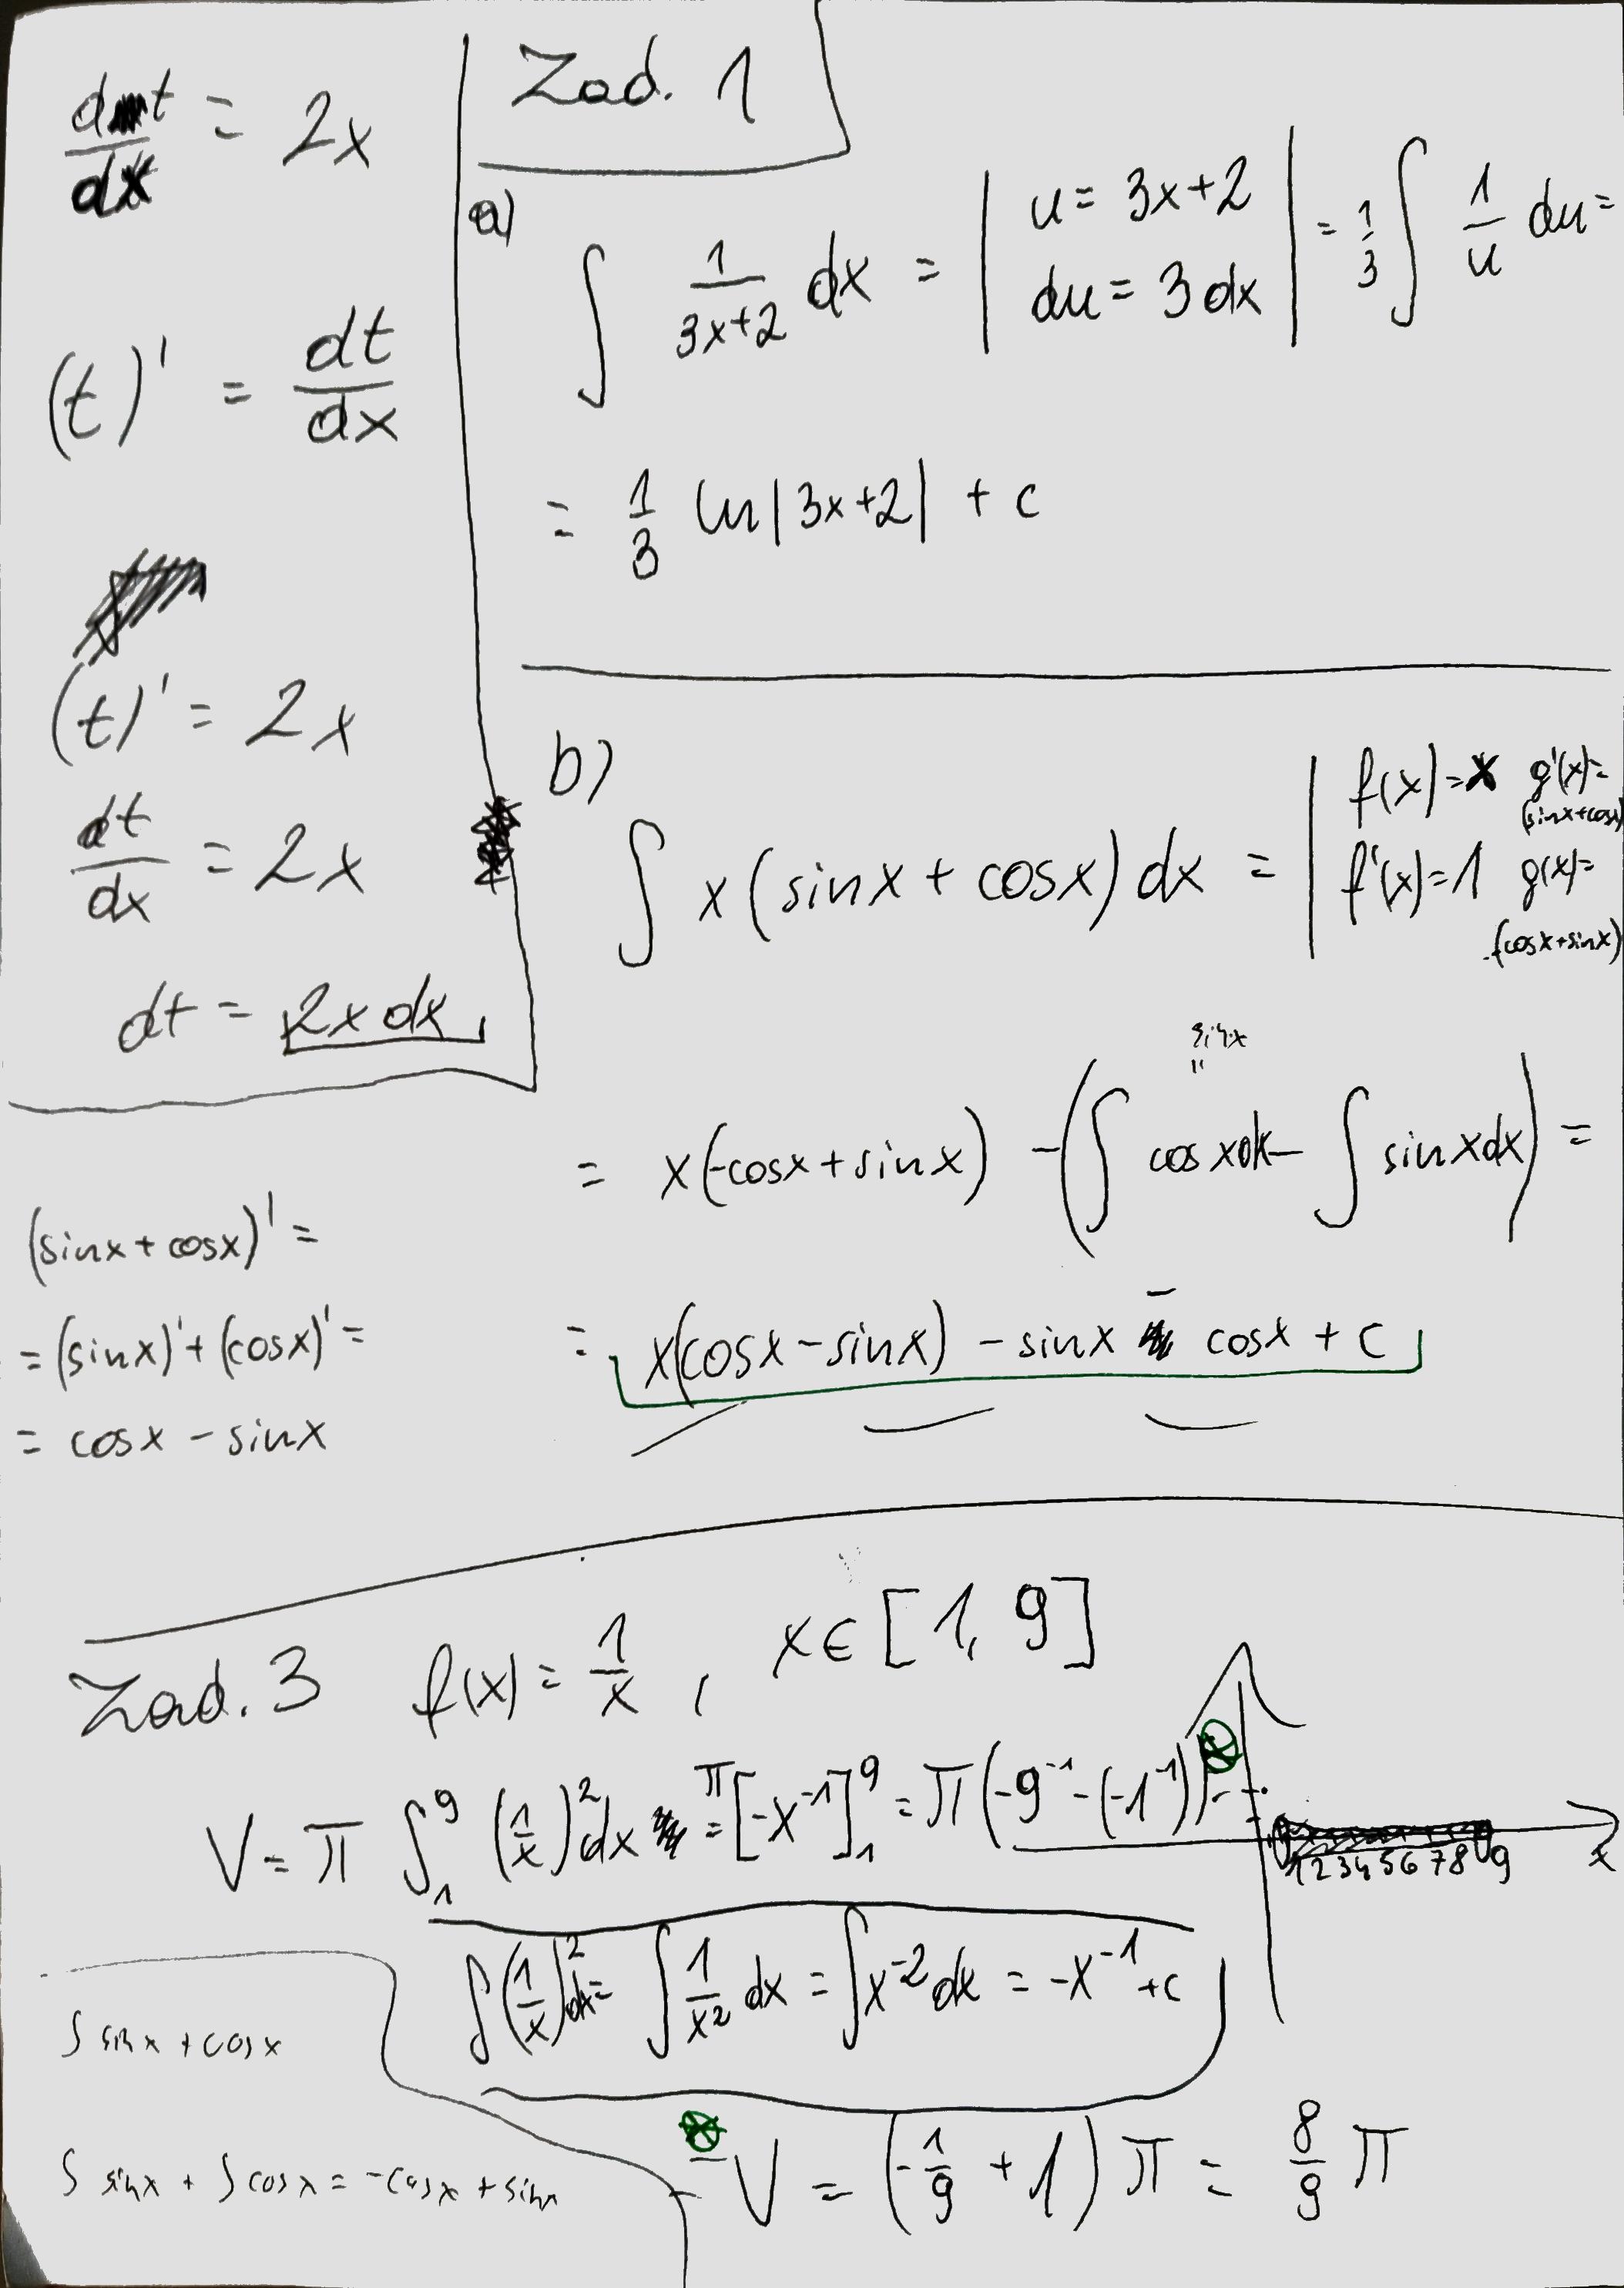 dt/dx = 2x
(t)' = dt/dx
(t)' = 2x
dt/dx = 2x
dt = 2x dx
Zad. 1
a)
∫ 1/(3x+2) dx = | u = 3x+2 du = 3dx | = 1/3 ∫ 1/u du =
= 1/3 ln|3x+2| + c
b)
∫ x(sinx + cosx) dx = | f(x)=x g'(x)= (sinx+cosx)
f'(x)=1 g(x)= -(cosx+sinx)
sinx
"
= x(-cosx + sinx) - (∫ cosxdx - ∫ sinxdx) =
= x(cosx - sinx) - sinx - cosx + c
(sinx + cosx)' =
= (sinx)' + (cosx)' =
= cosx - sinx
Zad. 3 f(x) = 1/x , x∈[1, 9]
V = π ∫₁⁹ (1/x)² dx = π[-x⁻¹]₁⁹ = π(-9⁻¹ - (-1⁻¹))
1 2 3 4 5 6 7 8 9 x
∫(1/x)² dx = ∫ 1/x² dx = ∫x⁻² dx = -x⁻¹ + c
V = (-1/9 + 1) π = 8/9 π
∫ sinx + cosx
∫ sinx + ∫ cosx = -cosx + sinx